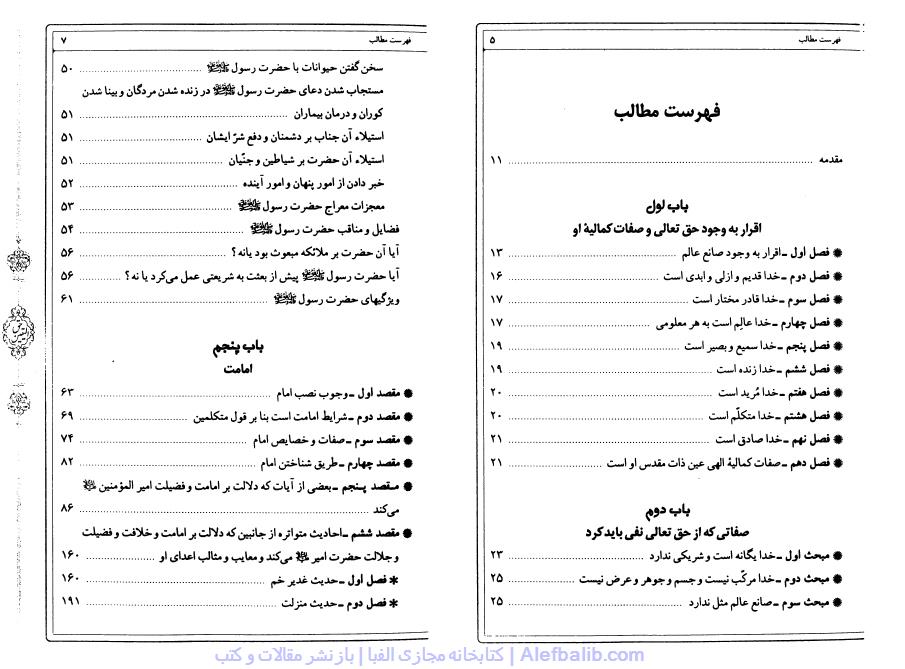 فهرست مطالب ۵
فهرست مطالب
مقدمه ۱۱
باب اول
اقرار به وجود حق تعالی و صفات کمالیهٔ او
فصل اول ـ اقرار به وجود صانع عالم ۱۳
فصل دوم ـ خدا قدیم و ازلی و ابدی است ۱۶
فصل سوم ـ خدا قادر مختار است ۱۷
فصل چهارم ـ خدا عالِم است به هر معلومی ۱۷
فصل پنجم ـ خدا سمیع و بصیر است ۱۹
فصل ششم ـ خدا زنده است ۱۹
فصل هفتم ـ خدا مُرید است ۲۰
فصل هشتم ـ خدا متکلّم است ۲۰
فصل نهم ـ خدا صادق است ۲۱
فصل دهم ـ صفات کمالیهٔ الهی عین ذات مقدس او است ۲۱
باب دوم
صفاتی که از حق تعالی نفی باید کرد
مبحث اول ـ خدا یگانه است و شریکی ندارد ۲۳
مبحث دوم ـ خدا مرکّب نیست و جسم و جوهر و عرض نیست ۲۵
مبحث سوم ـ صانع عالم مثل ندارد ۲۵
فهرست مطالب ۷
سخن گفتن حیوانات با حضرت رسول ﷺ ۵۰
مستجاب شدن دعای حضرت رسول ﷺ در زنده شدن مردگان و بینا شدن
کوران و درمان بیماران ۵۱
استیلاء آن جناب بر دشمنان و دفع شرّ ایشان ۵۱
استیلاء آن حضرت بر شیاطین و جنّیان ۵۱
خبر دادن از امور پنهان و امور آینده ۵۲
معجزات معراج حضرت رسول ﷺ ۵۳
فضایل و مناقب حضرت رسول ﷺ ۵۴
آیا آن حضرت بر ملائکه مبعوث بود یا نه؟ ۵۶
آیا حضرت رسول ﷺ پیش از بعثت به شریعتی عمل می‌کرد یا نه؟ ۵۶
ویژگیهای حضرت رسول ﷺ ۶۱
باب پنجم
امامت
مقصد اول ـ وجوب نصب امام ۶۳
مقصد دوم ـ شرایط امامت است بنا بر قول متکلمین ۶۹
مقصد سوم ـ صفات و خصایص امام ۷۴
مقصد چهارم ـ طریق شناختن امام ۸۲
مقصد پنجم ـ بعضی از آیات که دلالت بر امامت و فضیلت امیر المؤمنین
می‌کند ۸۶
مقصد ششم ـ احادیث متواتره از جانبین که دلالت بر امامت و خلافت و فضیلت
و جلالت حضرت امیر می‌کند و معایب و مثالب اعدای او ۱۶۰
* فصل اول ـ حدیث غدیر خم ۱۶۰
* فصل دوم ـ حدیث منزلت ۱۹۱
حق الیقین
Alefbalib.com | کتابخانه مجازی الفبا | بازنشر مقالات و کتب